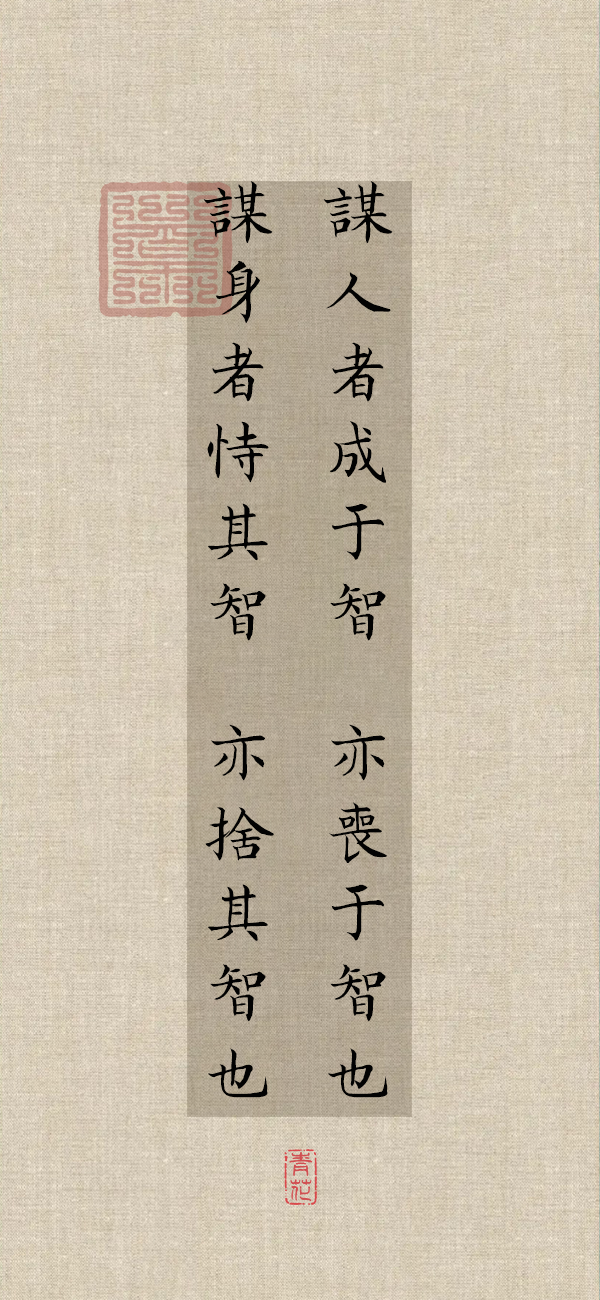 謀人者成于智　亦喪于智也
謀身者恃其智　亦捨其智也
青花